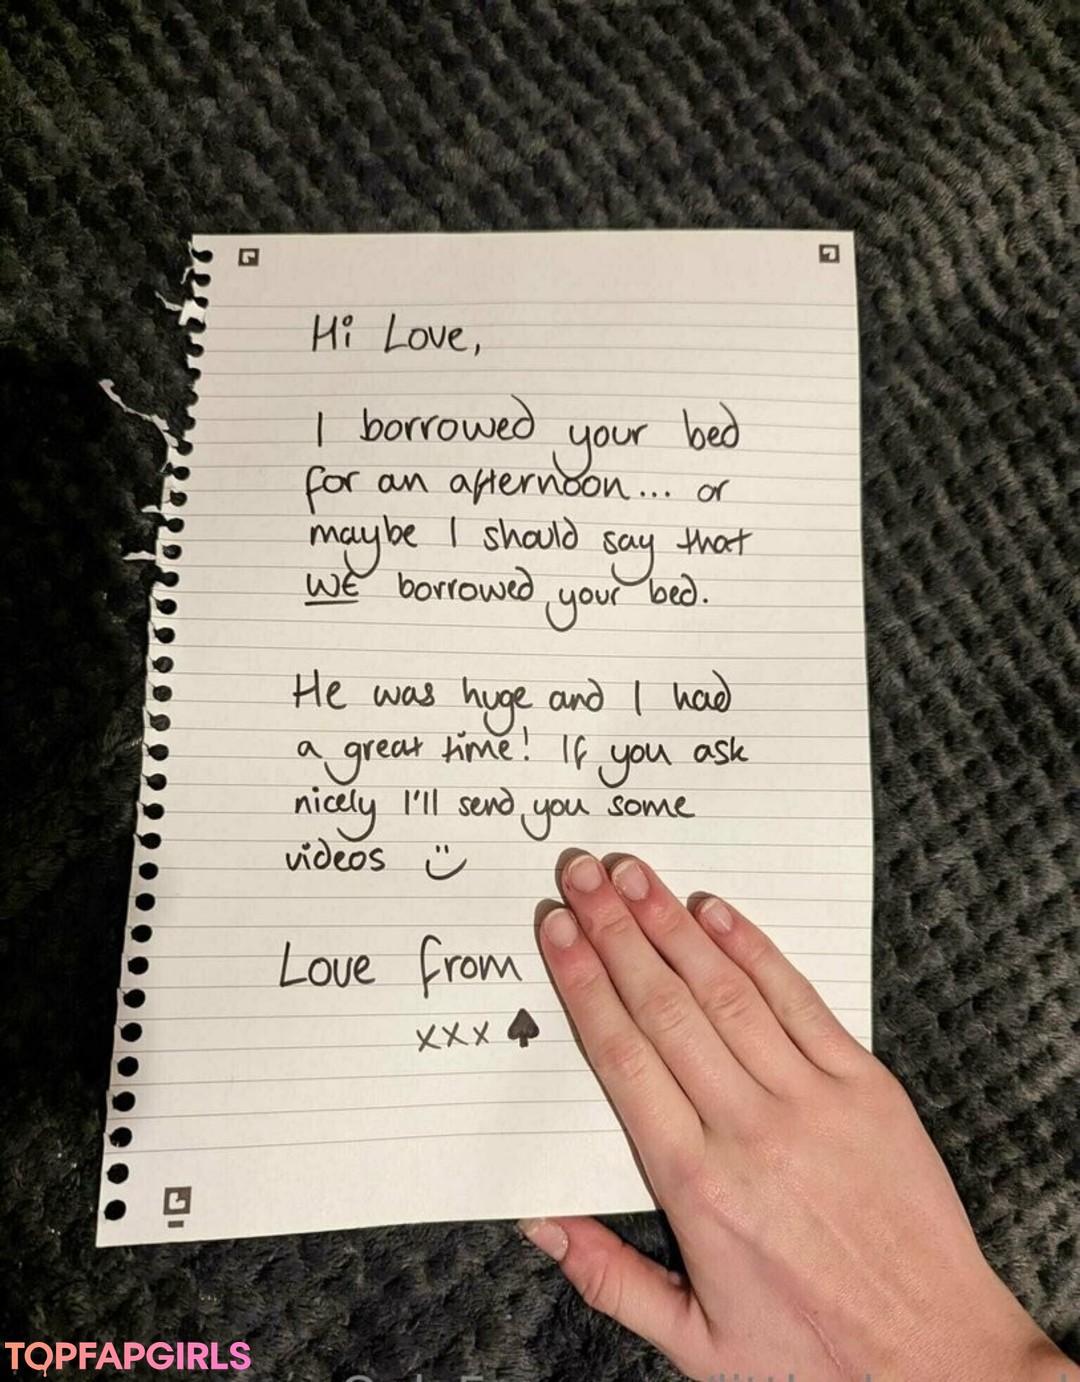 Hi Love,
I borrowed your bed
for an afternoon... or
maybe I should say that
WE borrowed your bed.
He was huge and I had
a great time! If you ask
nicely I'll send you some
videos
Love from
xxx
TOPFAPGIRLS